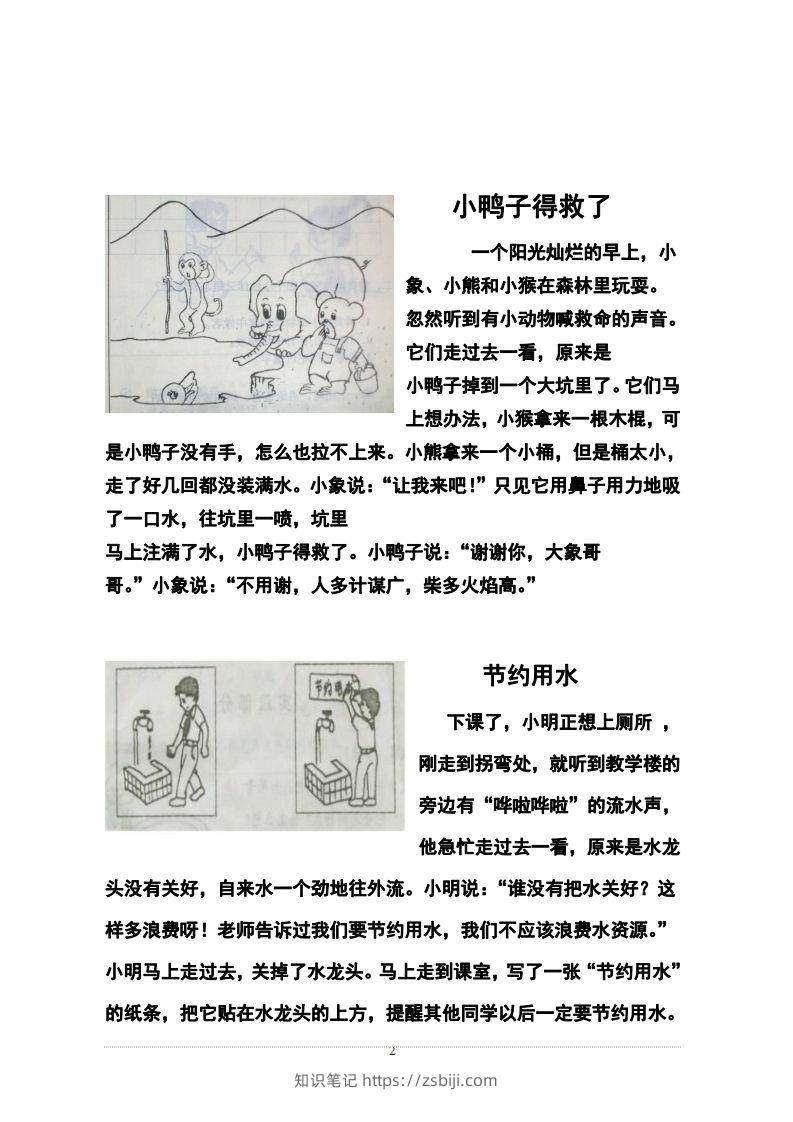 小鸭子得救了
一个阳光灿烂的早上，小
象、小熊和小猴在森林里玩耍。
忽然听到有小动物喊救命的声音。
它们走过去一看，原来是
小鸭子掉到一个大坑里了。它们马
上想办法，小猴拿来一根木棍，可
是小鸭子没有手，怎么也拉不上来。小熊拿来一个小桶，但是桶太小，
走了好几回都没装满水。小象说：“让我来吧！”只见它用鼻子用力地吸
了一口水，往坑里一喷，坑里
马上注满了水，小鸭子得救了。小鸭子说：“谢谢你，大象哥
哥。”小象说：“不用谢，人多计谋广，柴多火焰高。”
节约用水
节约用水
下课了，小明正想上厕所 ，
刚走到拐弯处，就听到教学楼的
旁边有“哗啦哗啦”的流水声，
他急忙走过去一看，原来是水龙
头没有关好，自来水一个劲地往外流。小明说：“谁没有把水关好？这
样多浪费呀！老师告诉过我们要节约用水，我们不应该浪费水资源。”
小明马上走过去，关掉了水龙头。马上走到课室，写了一张“节约用水”
的纸条，把它贴在水龙头的上方，提醒其他同学以后一定要节约用水。
2
知识笔记 https://zsbiji.com